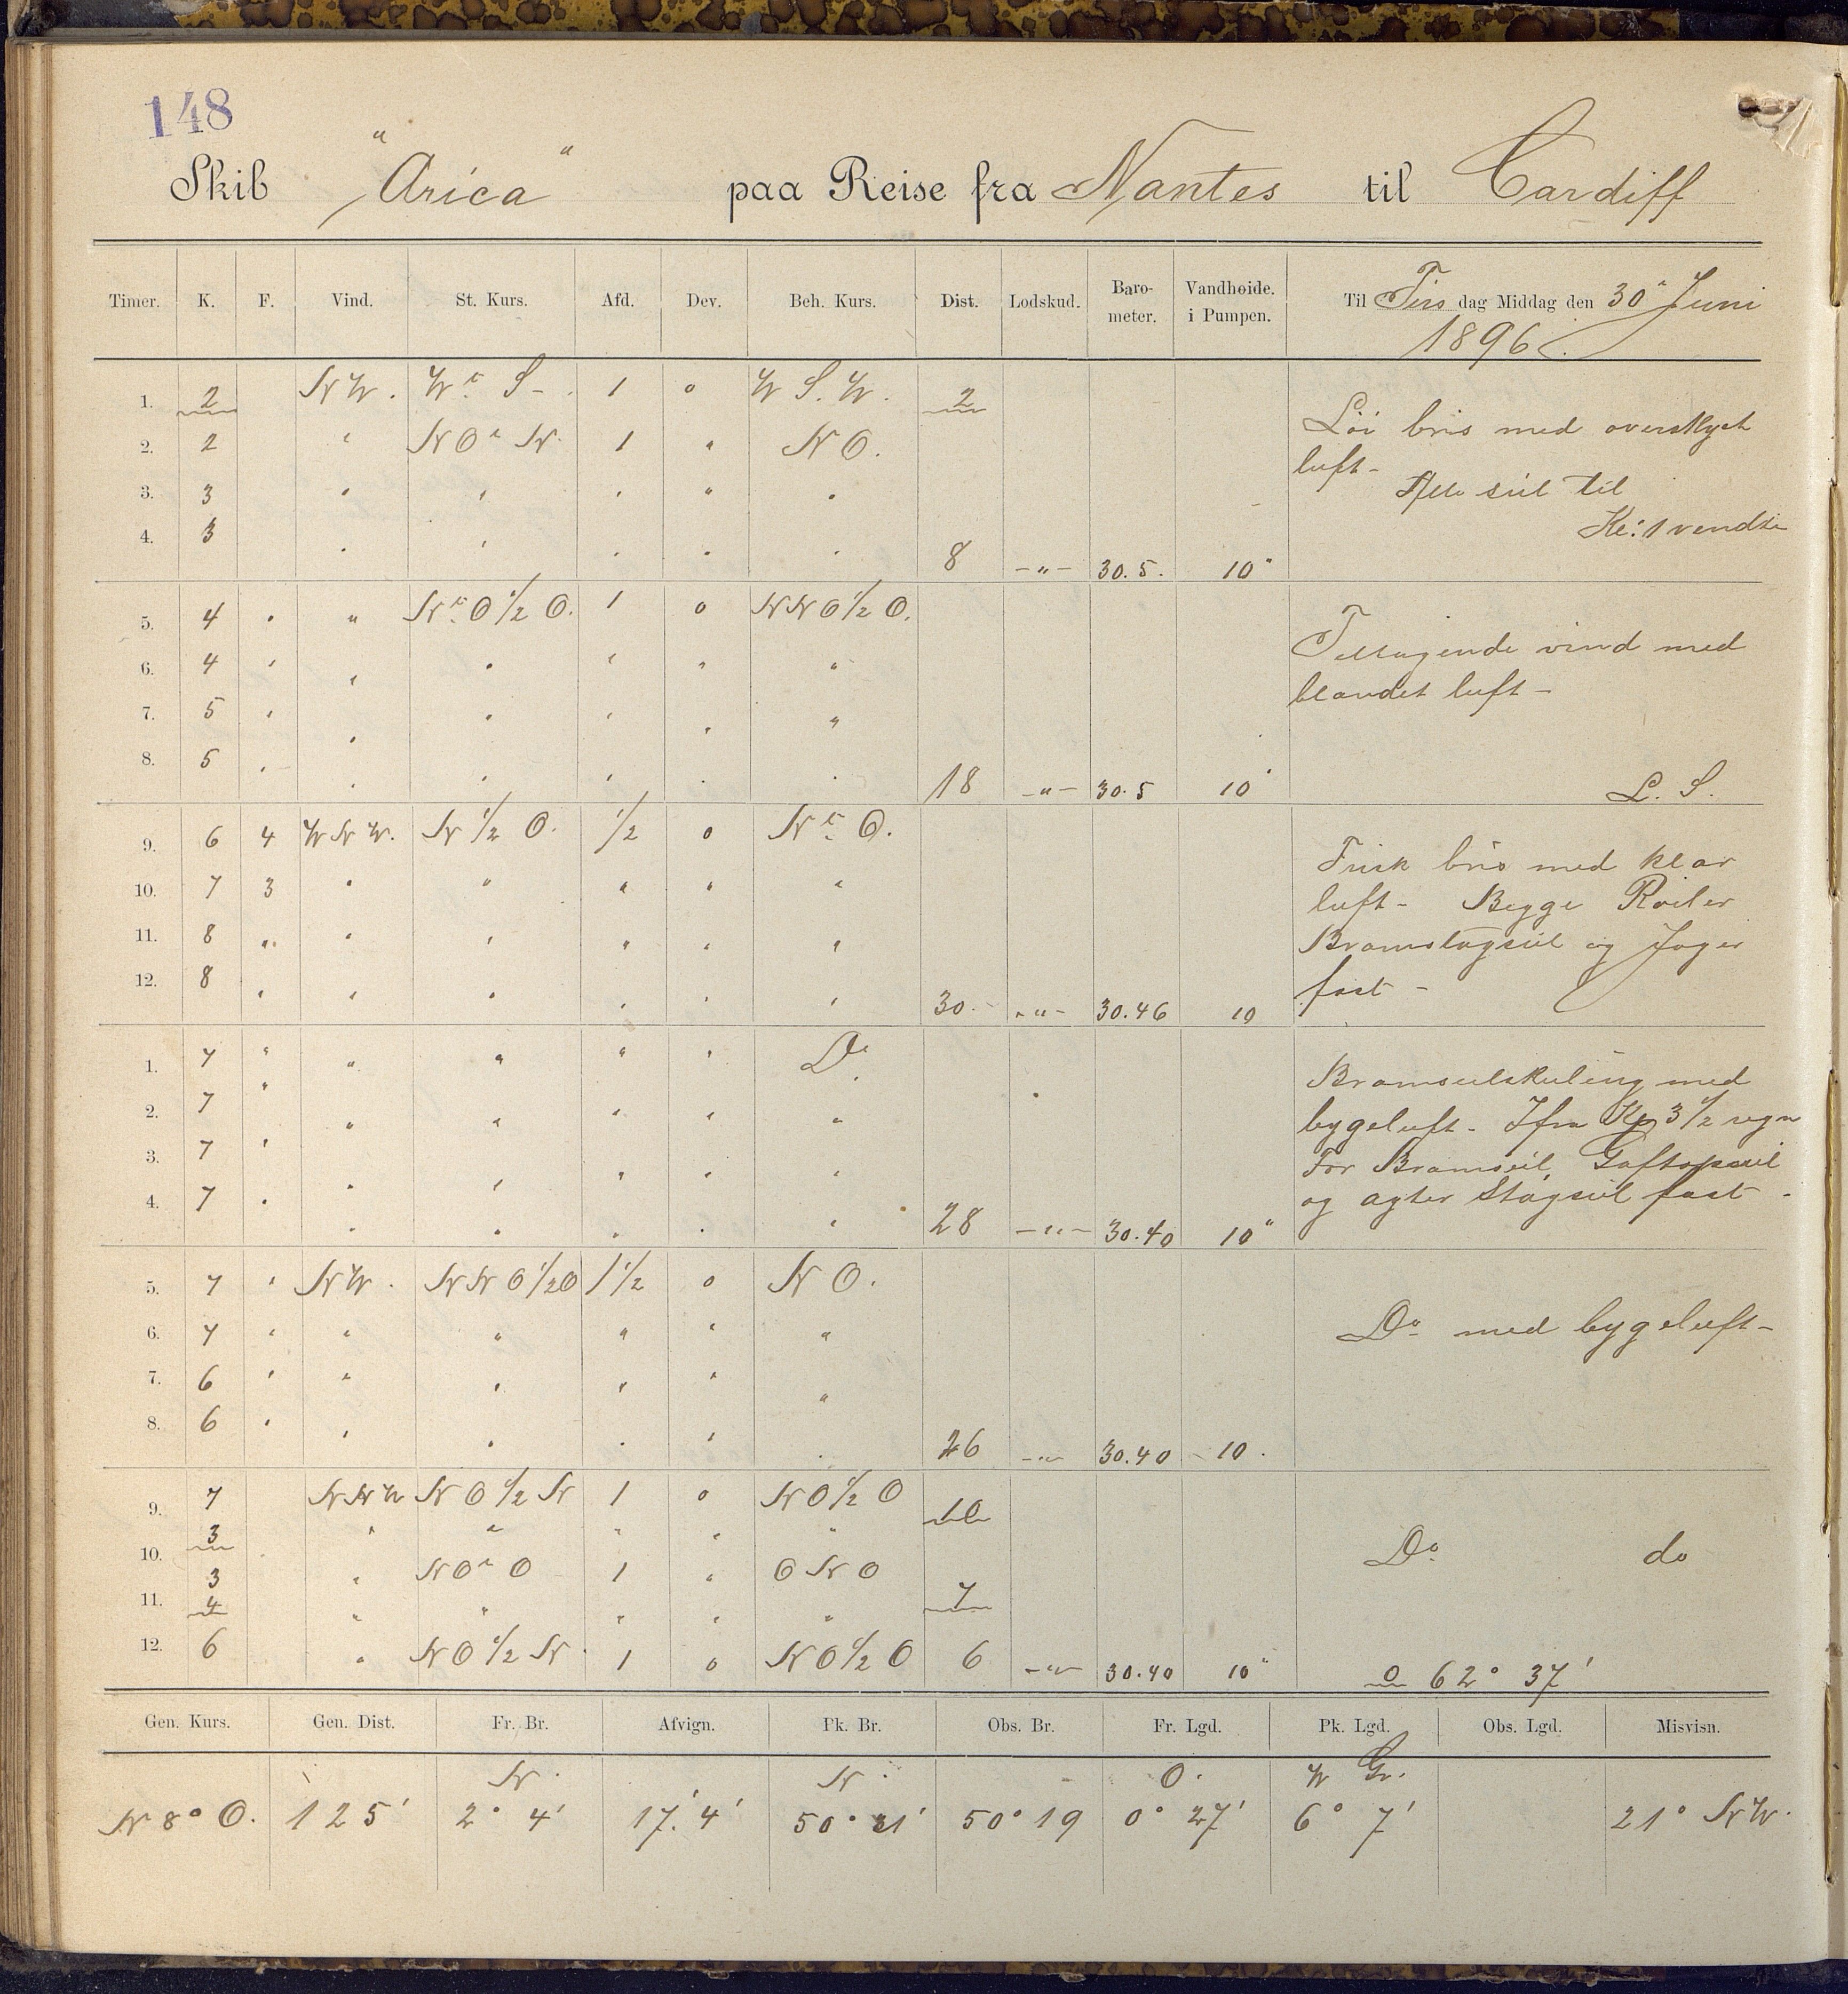 148
Skib "Arica" paa Reise fra Nantes til Cardiff
Timer. K. F. Vind. St. Kurs. Afd. Dev. Beh. Kurs. Dist. Lodskud. Baro-meter. Vandhøide. i Pumpen. Til Tirs dag Middag den 30" Juni
1896.
1. 2 NW. W t. S 1 0 W S. W. 2
Löi bris med overskyet
2. 2 " NO t N. 1 " NO.
luft-
3. 3 " " " " "
Alle seil til
Kl: 1 vendte
4. 3 " " " " " 8 -"- 30.5. 10"
5. 4 " " N t. O 1/2 O. 1 0 NNO 1/2 O.
Tiltagende vind med
6. 4 " " " " " "
blandet luft-
7. 5 " " " " " "
8. 5 " " " " " " 18 -"- 30.5 10"
L. S.
9. 6 4 WNW. N 1/2 O. 1/2 0 N t. O.
Frisk bris med klar
10. 7 3 " " " " "
luft- Begge Roiler
11. 8 " " " " " "
Bramstagseil og Jager
12. 8 " " " " " " 30. -"- 30.46 10
fast -
1. 7 " " " " " Do
Bramseilskuling med
2. 7 " " " " " "
bygeluft. Ifra Kl 3 1/2 regn
3. 7 " " " " " "
For Bramseil, Gaftopseil
4. 7 " " " " " " 28 -"- 30.40 10"
og agter Stagseil fast -
5. 7 " NW. NNO 1/2 O 1 1/2 0 NO.
6. 7 " " " " " "
Do med bygeluft-
7. 6 " " " " " "
8. 6 " " " " " " 26 -"- 30.40 10.
9. 7 NNW NO 1/2 N 1 0 NO 1/2 O 10
3 " " " " "
10. 3 " NO t O 1 " ONO
Do do
11. 4 " " " " " 7
12. 6 " NO 1/2 N. 1 0 NO 1/2 O 6 -"- 30.40 10"
0 62° 37'
Gen. Kurs. Gen. Dist. Fr. Br. Afvign. Pk. Br. Obs. Br. Fr. Lgd. Pk. Lgd. Obs. Lgd. Misvisn.
N. N. O. W Gr.
N 8° O. 125' 2° 4' 17.'4' 50° 21' 50° 19 0° 27' 6° 7' 21° NW.